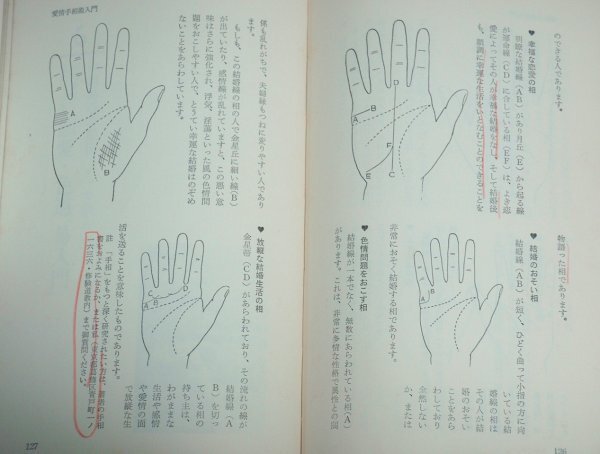 のできる人であります。
♥ 幸福な恋愛の相
明瞭な結婚線(AB)があり月丘(E)から起る線
が運命線(CD)に合している相(EF)は、よき恋
愛によってその人が幸福な結婚をなし、そして結婚後
も、順調に幸運な生活をいとなむことのできることを
物語った相であります。
♥ 結婚のおそい相
結婚線(AB)が短く、ひどく曲って小指の方に向
いている結
婚線の相は
その人が結
婚のおそい
ことをあら
わしており
全然しない
か、または
非常におそく結婚する相であります。
♥ 色情問題をおこす相
結婚線が一本でなく、無数にあらわれている相(A)
があります。これは、非常に多情な性格で異性との関
愛情手相術入門
係も乱れがちで、夫婦縁もつねに変りやすい人であり
もしも、この結婚線の相の人で金星丘に細い線(B)
が出ていたり、感情線が乱れていますと、この悪い意
味はさらに強化され、浮気、淫蕩といった風の色情問
題をおこしやすい人で、とうてい幸運な結婚はのぞめ
ないことをあらわしています。
♥ 放縦な結婚生活の相
金星帯(CD)があらわれており、その流れの線が
結婚線(A
B)を切っ
ている相の
持ち主は、
わがままな
生活や感情
や愛情の面
で放縦な生
活を送ることを意味したものであります。
註 「手相」をもっと深く研究されたい方は、
127